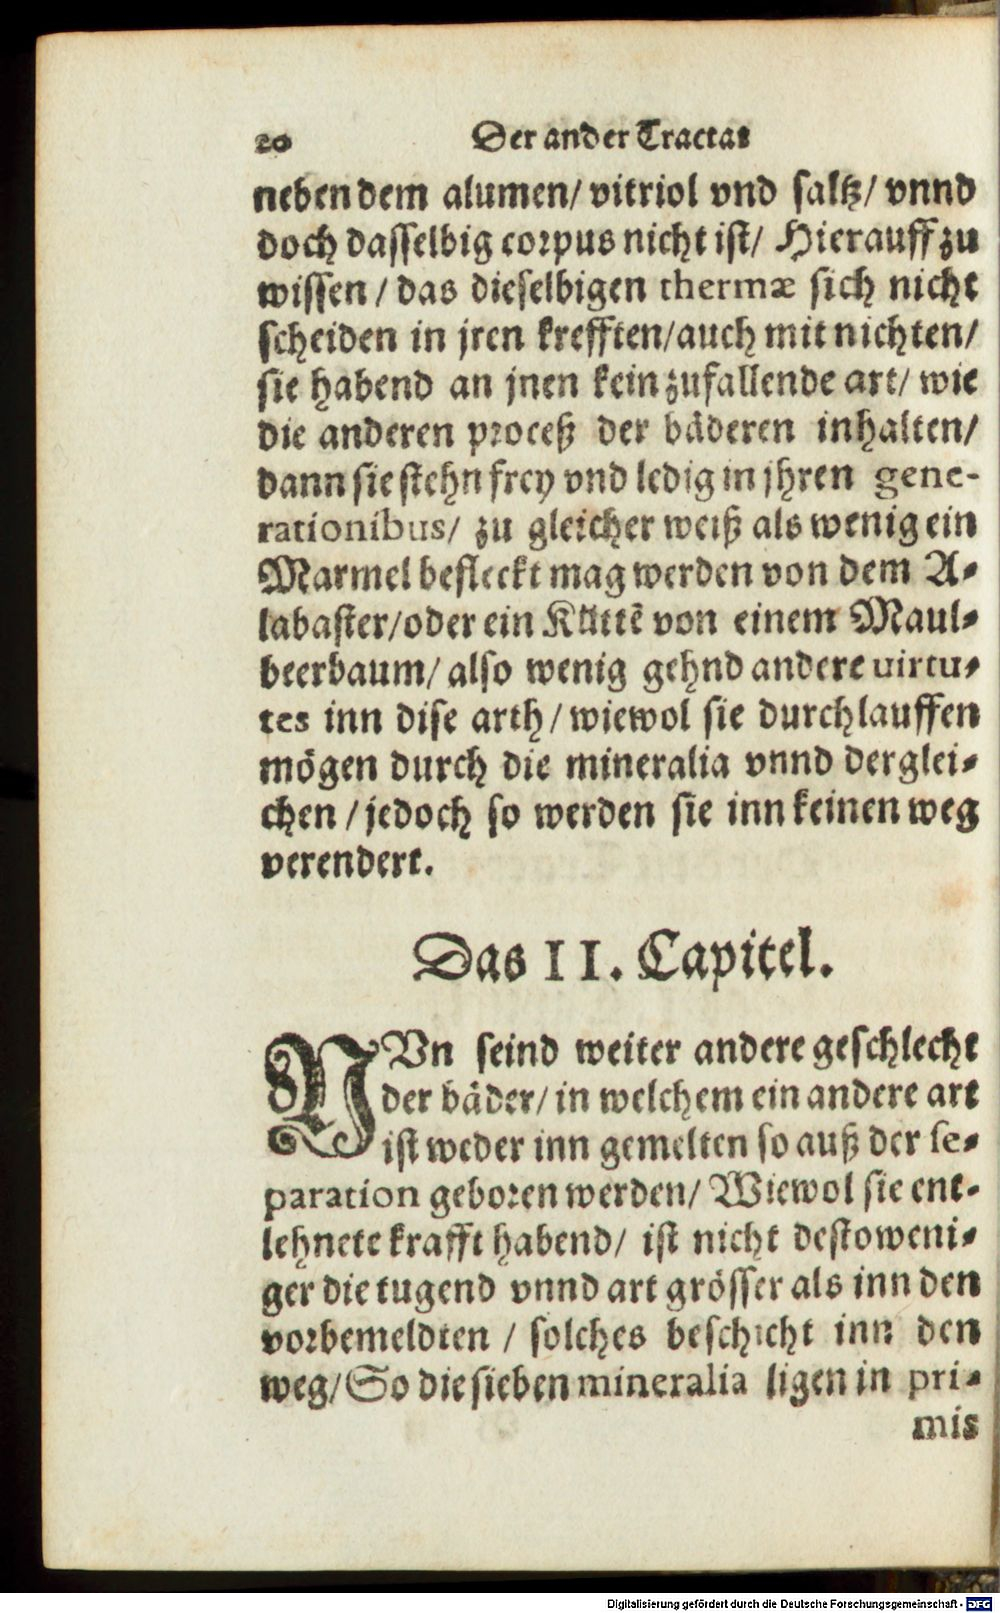 20 Der ander Tractat
neben dem alumen/ vitriol vnd saltz/ vnnd
doch dasselbig corpus nicht ist/ Hierauff zu
wissen / das dieselbigen thermæ sich nicht
scheiden in jren krefften/auch mit nichten/
sie habend an jnen kein zufallende art/ wie
die anderen proceß der bäderen inhalten/
dann sie stehn frey vnd ledig in jhren gene-
rationibus/ zu gleicher weiß als wenig ein
Marmel befleckt mag werden von dem A-
labaster/oder ein Küttẽ von einem Maul-
beerbaum/ also wenig gehnd andere uirtu-
tes inn dise arth / wiewol sie durchlauffen
mögen durch die mineralia vnnd derglei-
chen / jedoch so werden sie inn keinen weg
verendert.
Das II. Capitel.
NVn seind weiter andere geschlecht
der bäder/ in welchem ein andere art
ist weder inn gemelten so auß der se-
paration geboren werden/ Wiewol sie ent-
lehnete krafft habend/ ist nicht destoweni-
ger die tugend vnnd art grösser als inn den
vorbemeldten / solches beschicht inn den
weg/ So die sieben mineralia ligen in pri-
mis
Digitalisierung gefördert durch die Deutsche Forschungsgemeinschaft - DFG